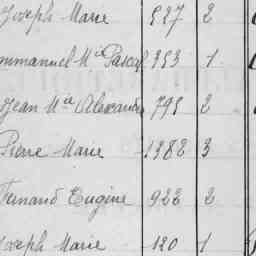 Joseph Marie 527 2
Emmanuel Mie Pascal 353 1
Jean Mie Alexandre 795 2
Pierre Marie 1382 3
Fernand Eugène 922 2
Joseph Marie 120 1